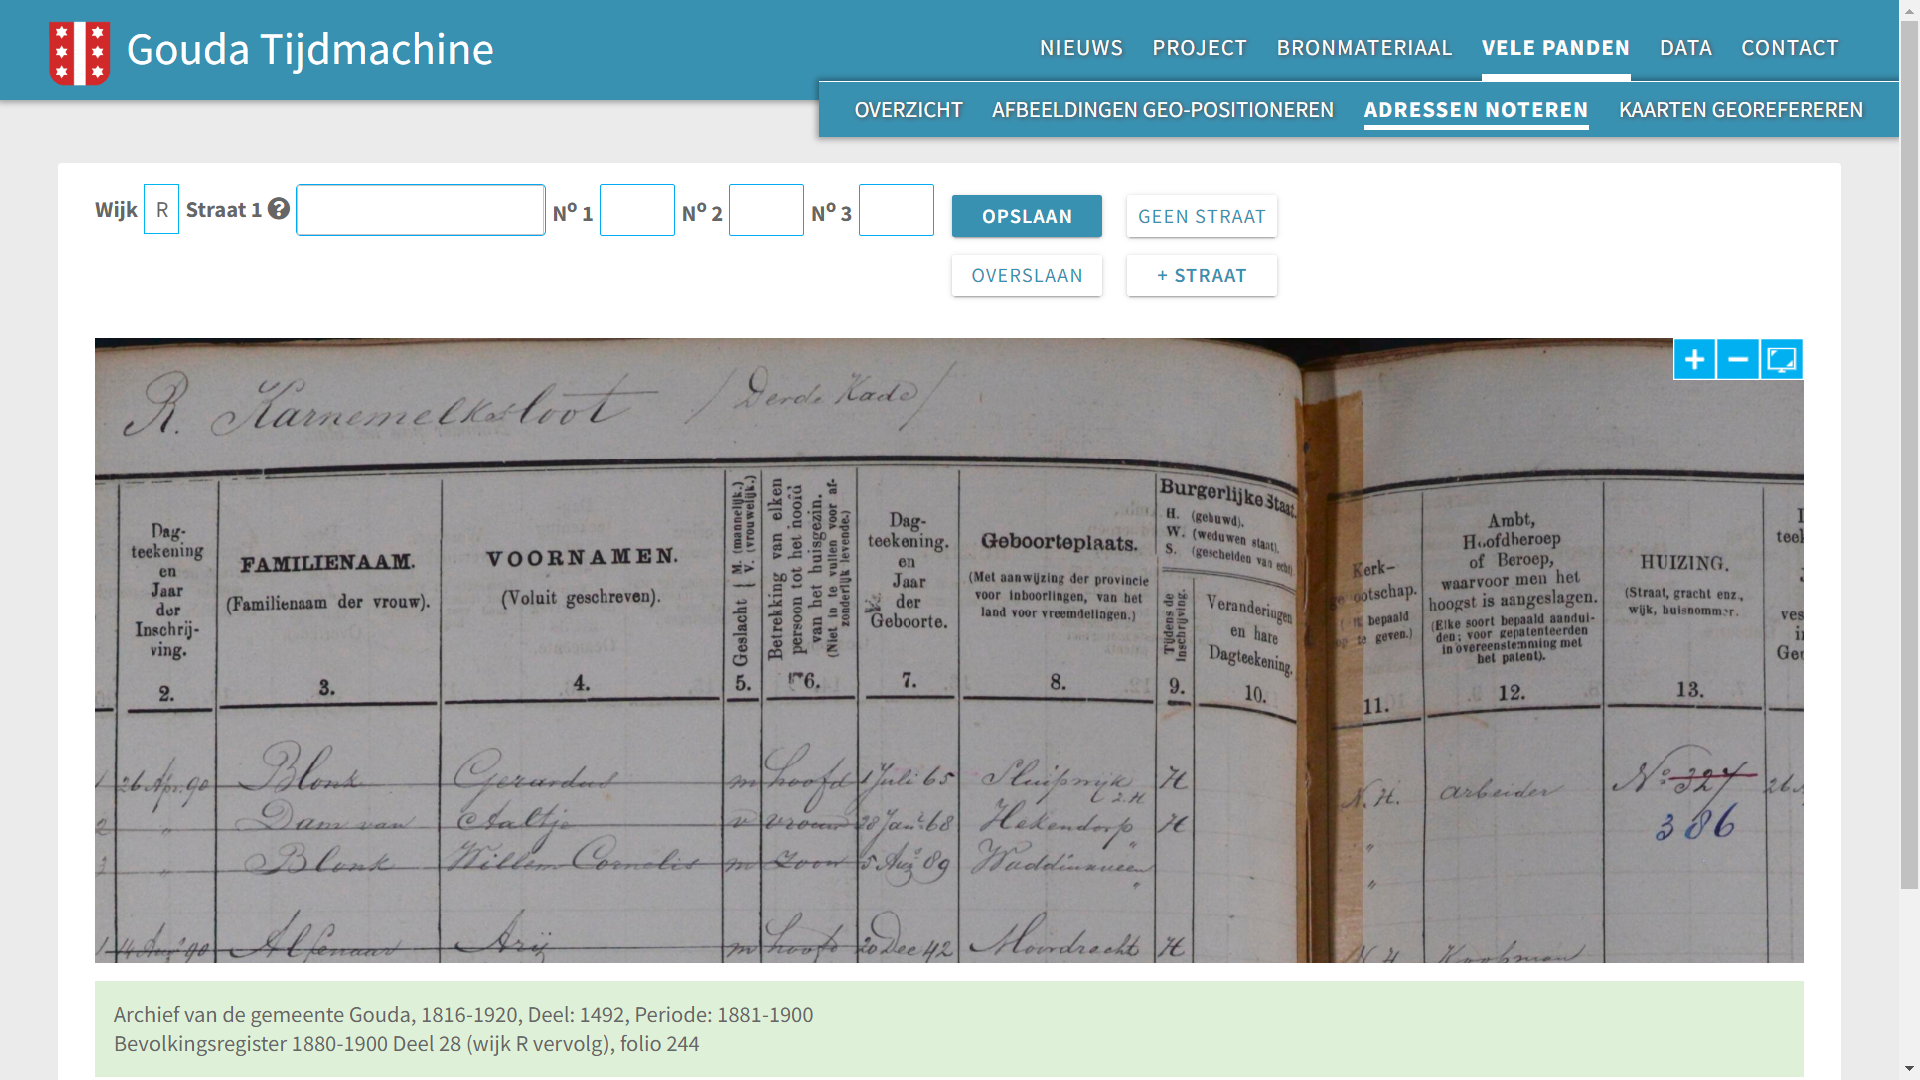 Gouda Tijdmachine
NIEUWS PROJECT BRONMATERIAAL VELE PANDEN DATA CONTACT
OVERZICHT AFBEELDINGEN GEO-POSITIONEREN ADRESSEN NOTEREN KAARTEN GEOREFEREREN
Wijk R Straat 1 ? Nº 1 Nº 2 Nº 3 OPSLAAN GEEN STRAAT
OVERSLAAN + STRAAT
R. Karnemelksloot / Derde Kade /
Dag-
teekening
en
Jaar
der
Inschrij-
ving.
2.
FAMILIENAAM.
(Familienaam der vrouw).
3.
VOORNAMEN.
(Voluit geschreven).
4.
Geslacht { M. (mannelijk.)
V. (vrouwelijk.)
5.
Betrekking van elken
persoon tot het hoofd
van het huisgezin.
(Niet in te vullen voor af-
zonderlijk levende.)
6.
Dag-
teekening.
en
Jaar
der
Geboorte.
7.
Geboorteplaats.
(Met aanwijzing der provincie
voor inboorlingen, van het
land voor vreemdelingen.)
8.
Burgerlijke Staat.
H. (gehuwd).
W. (weduwen staat).
S. (gescheiden van echt).
Tijdens de
inschrijving.
9.
Veranderingen
en hare
Dagteekening.
10.
Kerk-
genootschap.
bepaald
geven.)
11.
Ambt,
Hoofdberoep
of Beroep,
waarvoor men het
hoogst is aangeslagen.
(Elke soort bepaald aandui-
den; voor gepatenteerden
in overeenstemming met
het patent).
12.
HUIZING.
(Straat, gracht enz.,
wijk, huisnommer.
13.
1 26 Apr. 90 Blonk Gerardus m hoofd 1 Juli 65 Sluipwijk Z.H H N.H. arbeider Nº 327 26
2 " Dam van Aaltje v vrouw 28 Jan 68 Hekendorp " H " 386
3 " Blonk Willem Cornelis m zoon 5 Aug 89 Waddinxveen " "
1 14 90 Alfenaar Arij m hoofd 20 Dec 42 Moordrecht H N.H Koopman
Archief van de gemeente Gouda, 1816-1920, Deel: 1492, Periode: 1881-1900
Bevolkingsregister 1880-1900 Deel 28 (wijk R vervolg), folio 244